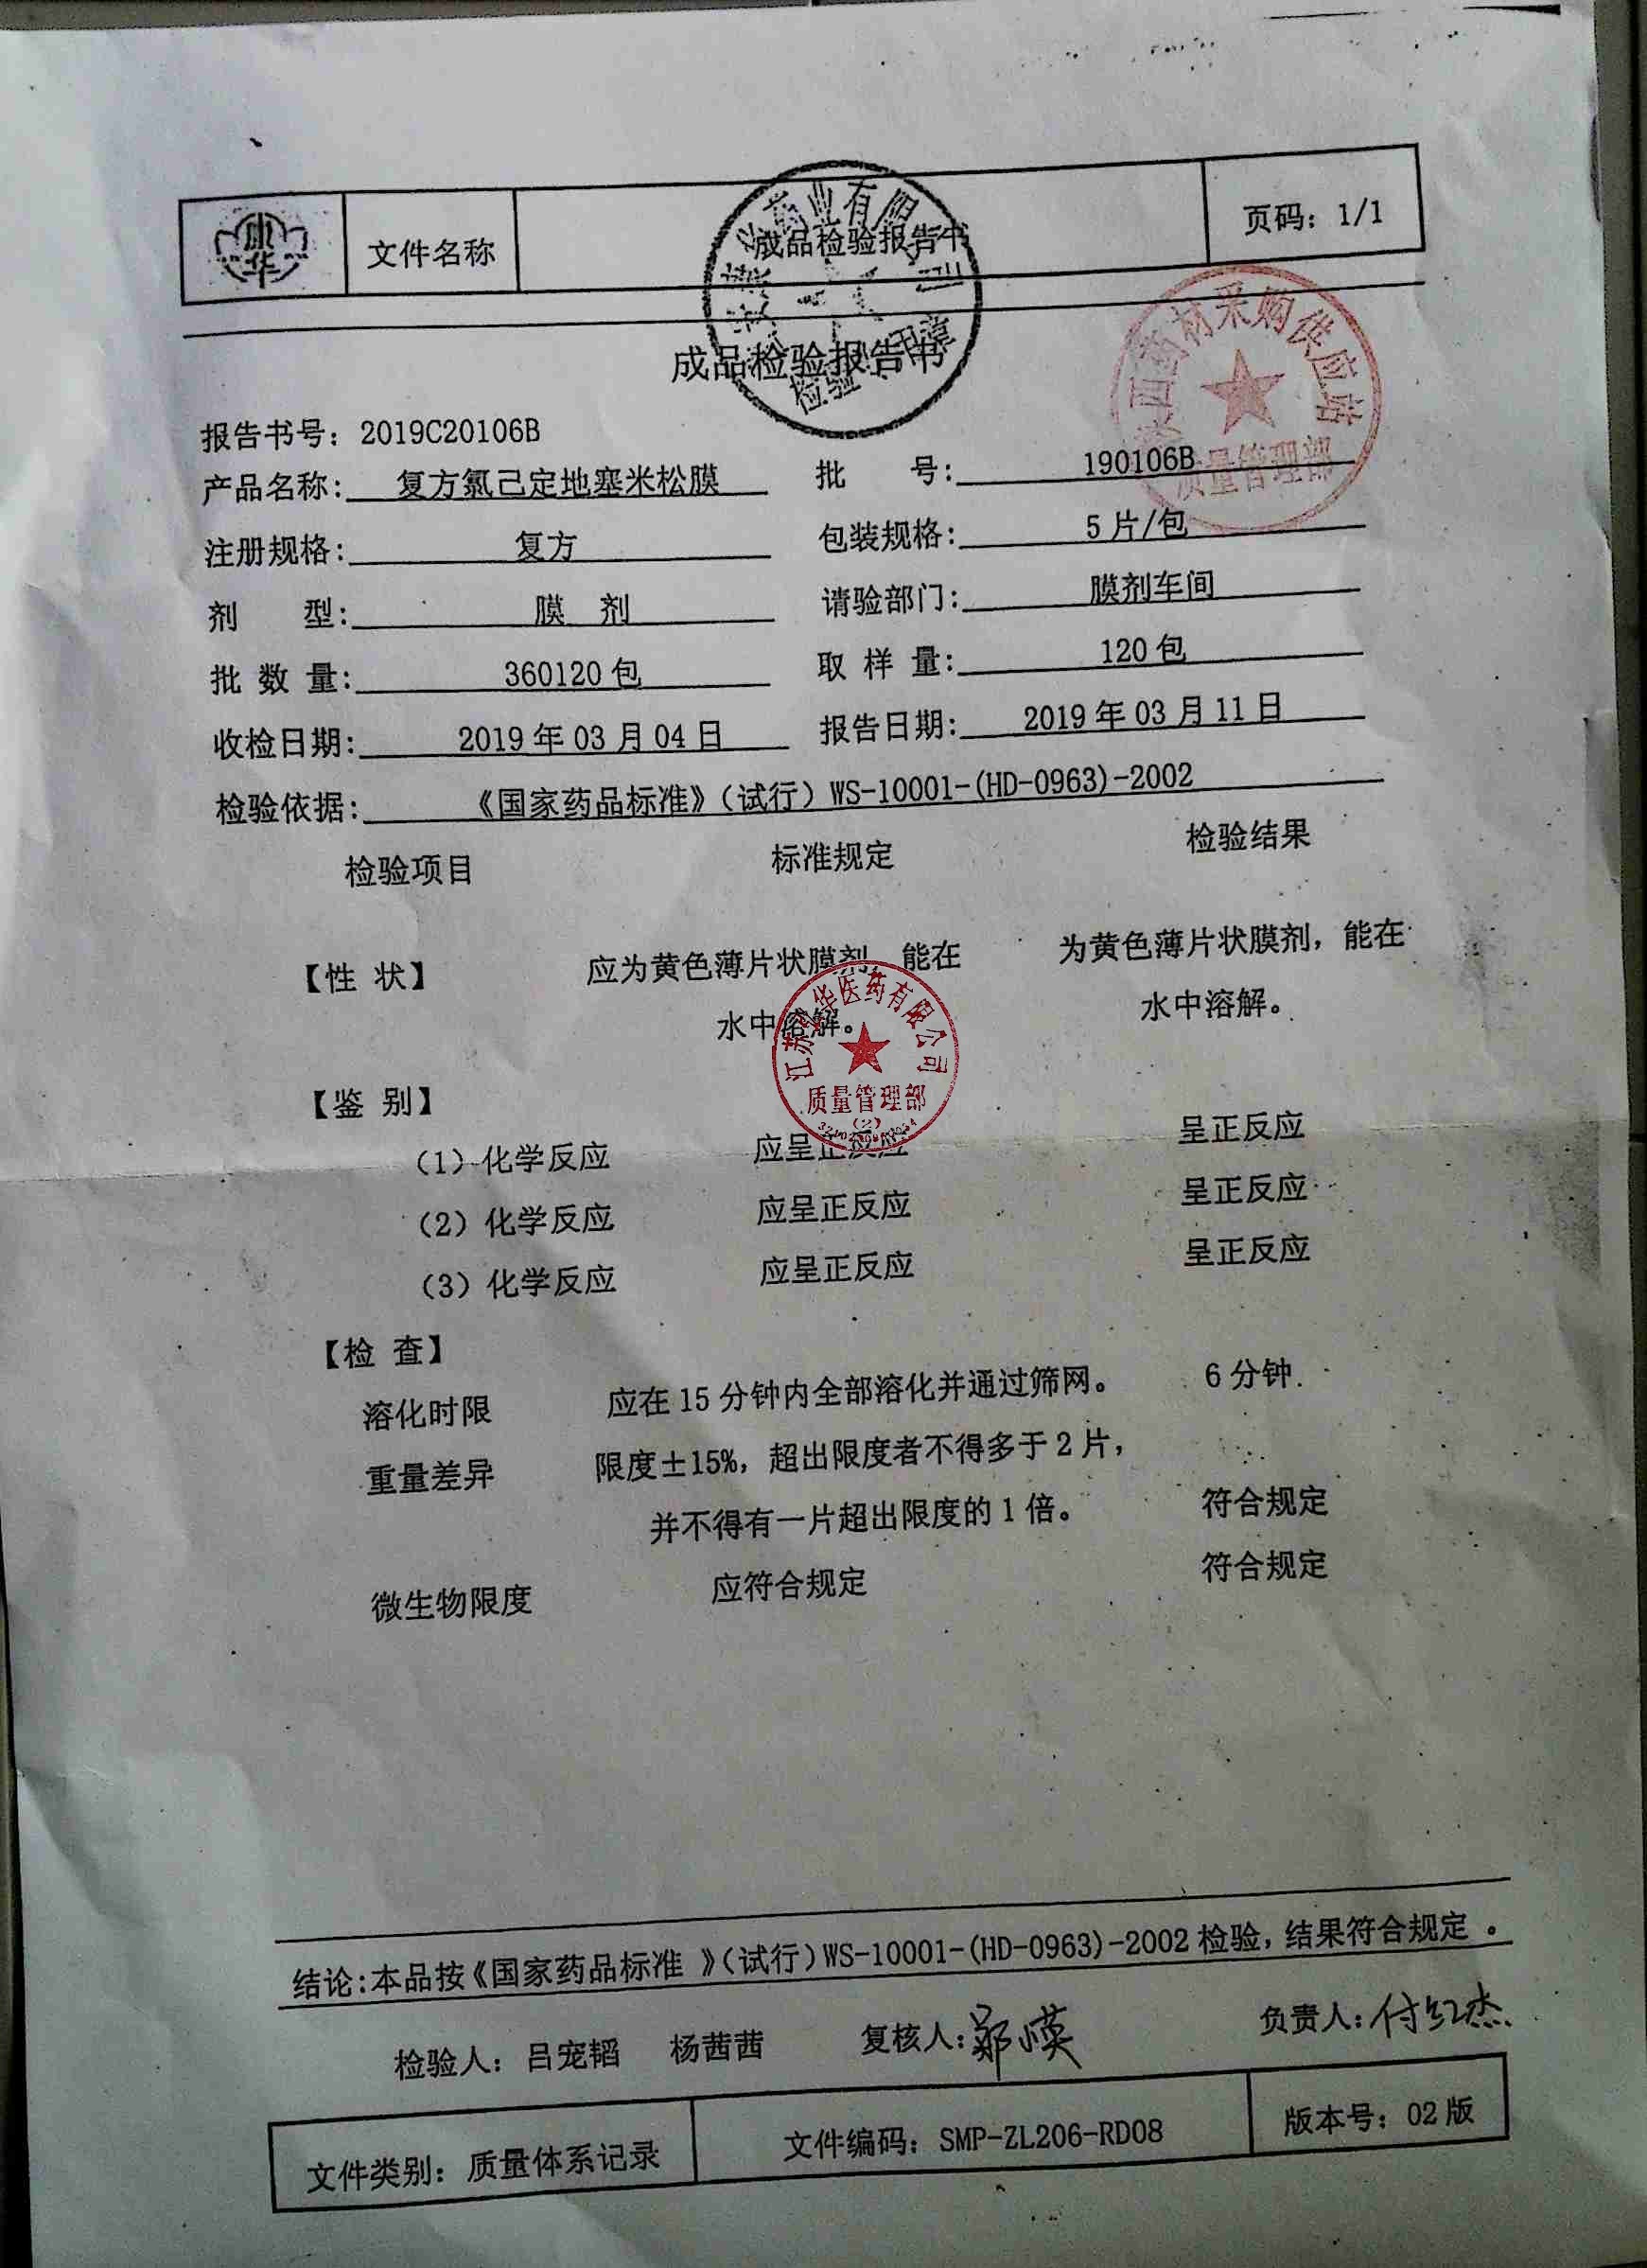 康华
文件名称 成品检验报告书 页码：1/1
药业有限
检验
药材采购供应站
质量管理部
成品检验报告书
报告书号：2019C20106B
产品名称： 复方氯己定地塞米松膜 批 号： 190106B
注册规格： 复方 包装规格： 5片/包
剂 型： 膜 剂 请验部门： 膜剂车间
批 数 量： 360120包 取 样 量： 120包
收检日期： 2019年03月04日 报告日期： 2019年03月11日
检验依据： 《国家药品标准》（试行）WS-10001-(HD-0963)-2002
检验项目 标准规定 检验结果
【性 状】 应为黄色薄片状膜剂，能在 为黄色薄片状膜剂，能在
水中溶解。 水中溶解。
华医药有限公司
质量管理部
(2)
【鉴 别】
（1）化学反应 应呈正反应 呈正反应
（2）化学反应 应呈正反应 呈正反应
（3）化学反应 应呈正反应 呈正反应
【检 查】
溶化时限 应在15分钟内全部溶化并通过筛网。 6分钟.
重量差异 限度±15%，超出限度者不得多于2片，
并不得有一片超出限度的1倍。 符合规定
微生物限度 应符合规定 符合规定
结论：本品按《国家药品标准 》（试行）WS-10001-(HD-0963)-2002检验，结果符合规定 。
检验人：吕宠韬 杨茜茜 复核人：郑瑛 负责人：付红杰
文件类别：质量体系记录 文件编码：SMP-ZL206-RD08 版本号：02版